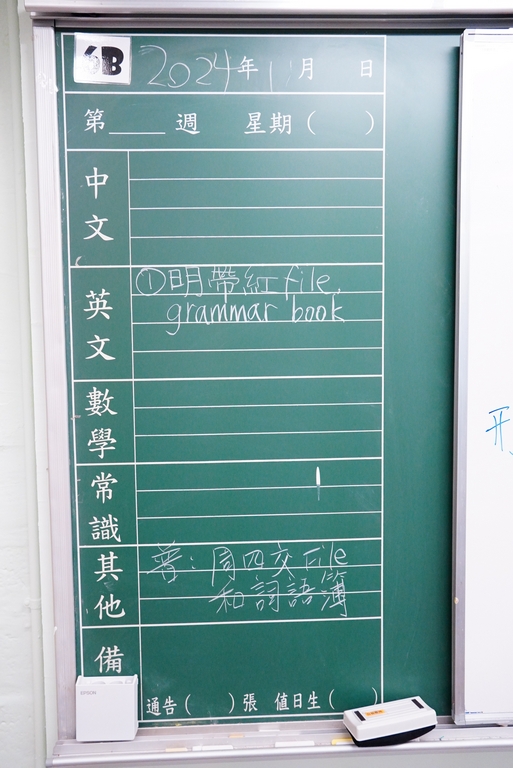 6B 2024年11月 日
第____週 星期( )
中文
英文
①明帶紅file,
grammar book
數學
常識
其他
普：周四交File
和詞語簿
備
通告( )張 值日生( )
EPSON